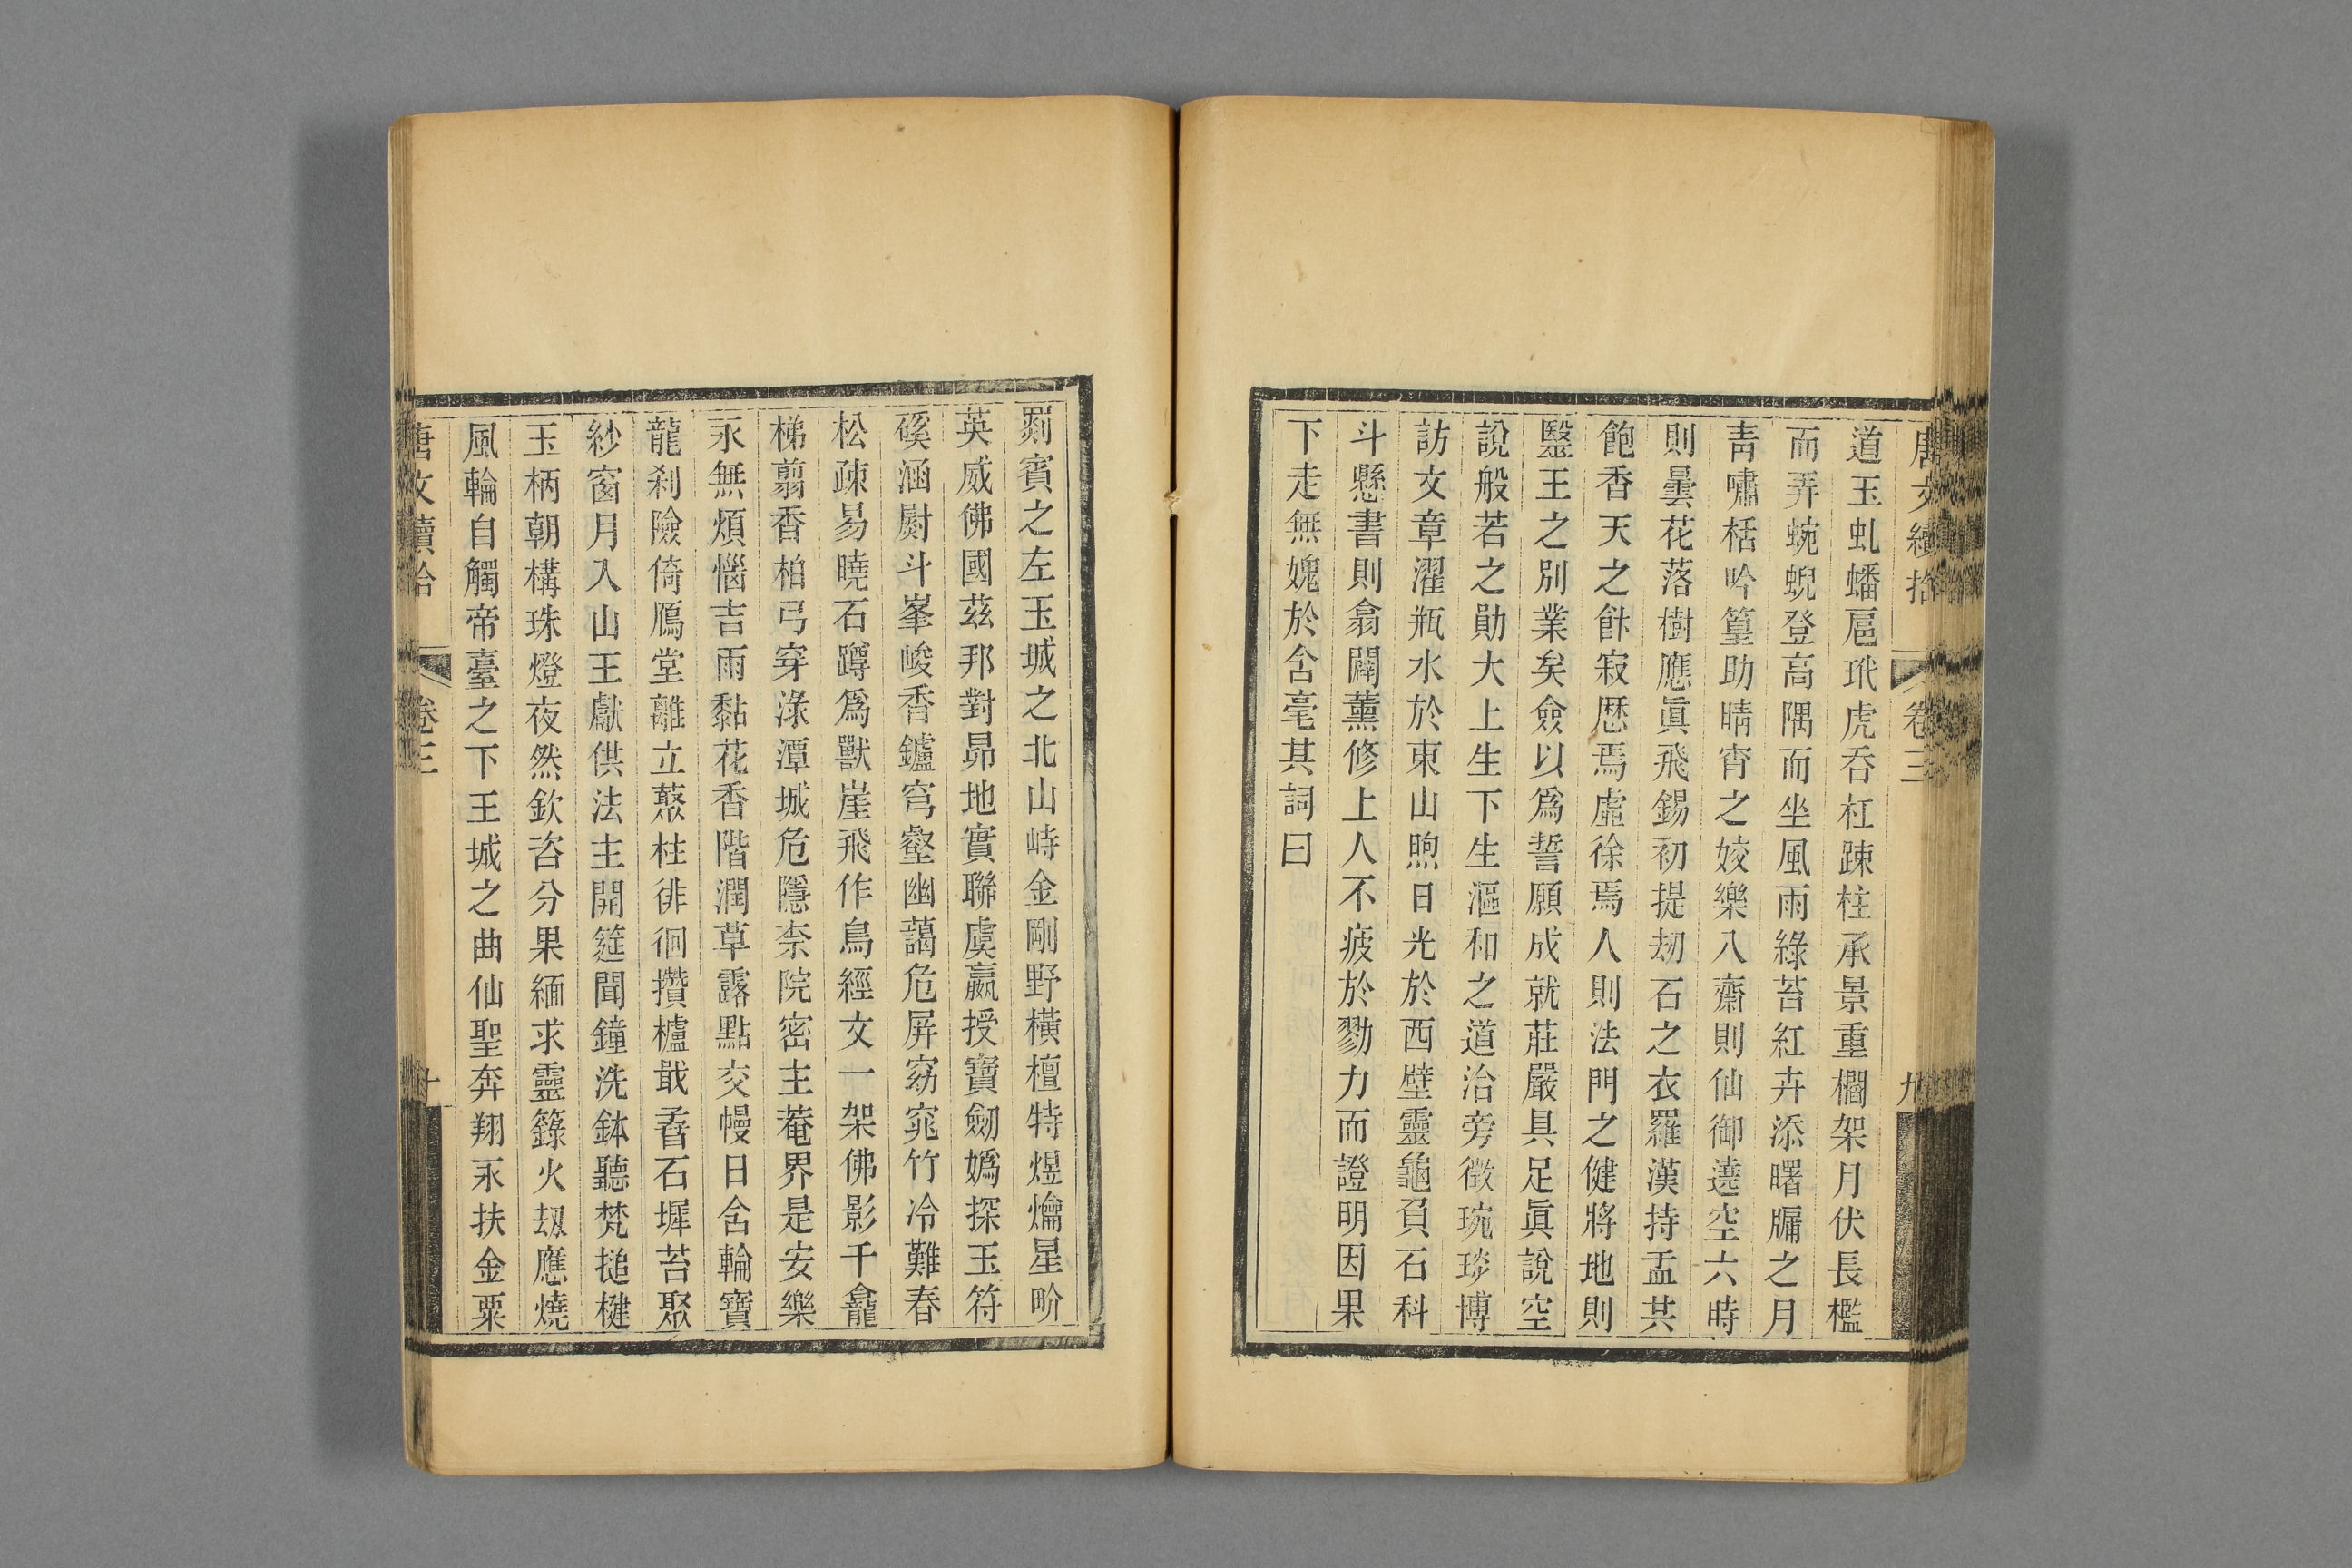 唐文續拾 卷三 九
道玉虬蟠扈玳虎呑杠疎柱承景重櫩架月伏長檻
而弄蜿蜺登高隅而坐風雨綠苔紅卉添曙牖之月
靑嘯栝吟篁助晴宵之姣樂八齋則仙御遶空六時
則曇花落樹應眞飛錫初提刼石之衣羅漢持盂共
飽香天之飰寂歷焉虛徐焉人則法門之健將地則
毉王之別業矣僉以爲誓願成就莊嚴具足眞說空
說般若之勛大上生下生漚和之道洽旁徵琬琰博
訪文章濯瓶水於東山煦日光於西壁靈龜負石科
斗懸書則翕闢薰修上人不疲於勠力而證明因果
下走無媿於含毫其詞曰
罽賓之左玉城之北山峙金剛野橫檀特煜爚星畍
英威佛國茲邦對昴地實聯虞嬴授寶劒嬀探玉符
磎涵尉斗峯峻香鑪穹壑幽藹危屏窈窕竹冷難春
松疎易曉石蹲爲獸崖飛作鳥經文一架佛影千龕
梯翦香柏弓穿淥潭城危隱柰院密主菴界是安樂
永無煩惱吉雨黏花香階潤草露點交幔日含輪寶
龍刹險倚鴈堂離立藂柱徘徊攢櫨戢孴石墀苔聚
紗窗月入山王獻供法主開筵聞鐘洗鉢聽梵搥楗
玉柄朝構珠燈夜然欽咨分果緬求靈籙火刼應燒
風輪自觸帝臺之下王城之曲仙聖奔翔永扶金粟
唐文續拾 卷三 十